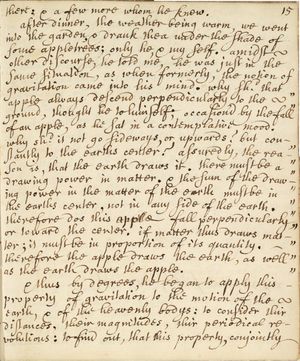 there: & a few more whom he knew. 15
after dinner, the weather being warm, we went
into the garden, & drank thea under the shade of
some appletrees; only he, & my self. amidst
other discourse, he told me, he was just in the
same situation, as when formerly, the notion of
gravitation came into his mind. why shd. that
apple always descend perpendicularly to the
ground, thought he to himself; occasion'd by the fall
of an apple, as he sat in a contemplative mood.
why shd. it not go sideways, or upwards? but con-
stantly to the earths center? assuredly, the rea-
son is, that the earth draws it. there must be a
drawing power in matter. & the sum of the draw-
ing power in the matter of the earth must be in
the earths center, not in any side of the earth.
therefore dos this apple fall perpendicularly
or toward the center. if matter thus draws mat-
ter; it must be in proportion of its quantity.
therefore the apple draws the earth, as well
as the earth draws the apple.
& thus by degrees, he began to apply this
property of gravitation to the motion of the
earth, & of the heavenly bodys: to consider thir
distances, their magnitudes, thir periodical re-
volutions: to find out, that this property, conjointly